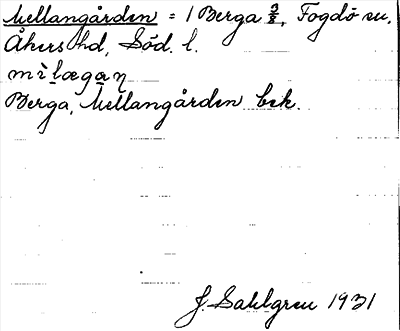 Mellangården = 1 Berga 3/8, Fogdö sn,
Åkers hd, Söd. l.
mìlægaṇ
Berga, Mellangården bek.
J. Sahlgren 1931